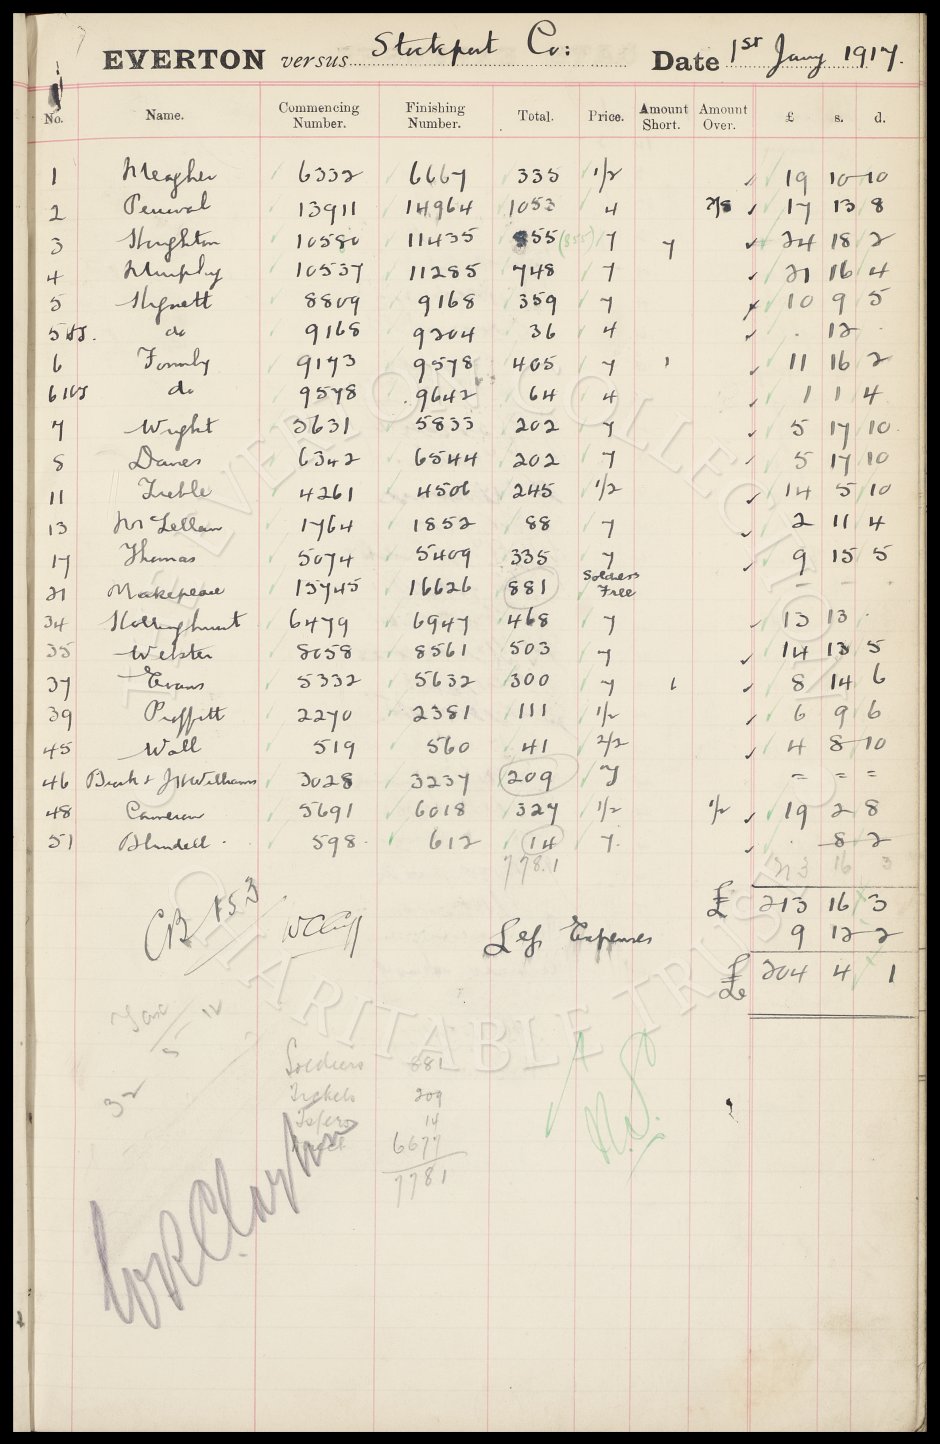 EVERTON versus Stockport Co: Date 1st Jany 1917.
No. Name. Commencing Number. Finishing Number. Total. Price. Amount Short. Amount Over. £ s. d.
1 Meagher 6332 6667 335 1/2 19 10 10
2 Percival 13911 14964 1053 4 2/8 17 13 8
3 Houghton 10580 11435 855 (855) 7 7 24 18 2
4 Murphy 10537 11285 748 7 21 16 4
5 Hignett 8809 9168 359 7 10 9 5
5 do 9168 9204 36 4 . 12 .
6 Formby 9173 9578 405 7 1 11 16 2
6 do 9578 9642 64 4 1 1 4
7 Wright 5631 5833 202 7 5 17 10
8 Davies 6342 6544 202 7 5 17 10
11 Treble 4261 4506 245 1/2 14 5 10
13 McLellan 1764 1852 88 7 2 11 4
17 Thomas 5074 5409 335 7 9 15 5
21 Makepeace 15745 16626 881 Soldiers Free - - -
34 Hollinghurst 6479 6947 468 7 13 13 .
35 Webster 8058 8561 503 7 14 13 5
37 Evans 5332 5632 300 7 1 8 14 6
39 Proffitt 2270 2381 111 1/2 6 9 6
45 Wall 519 560 41 2/2 4 8 10
46 & J H Williams 3028 3237 209 7 = = =
48 Cameron 5691 6018 327 1/2 1/2 19 2 8
51 Blundell 598 612 14 7 . 8 2
7781 213 16 3
£ 213 16 3
CB 153
Less Expenses 9 12 2
£ 204 4 1
Tax
32
Soldiers 881
Tickets 209
14
6677
7781
W R Clayton
THE EVERTON COLLECTION CHARITABLE TRUST